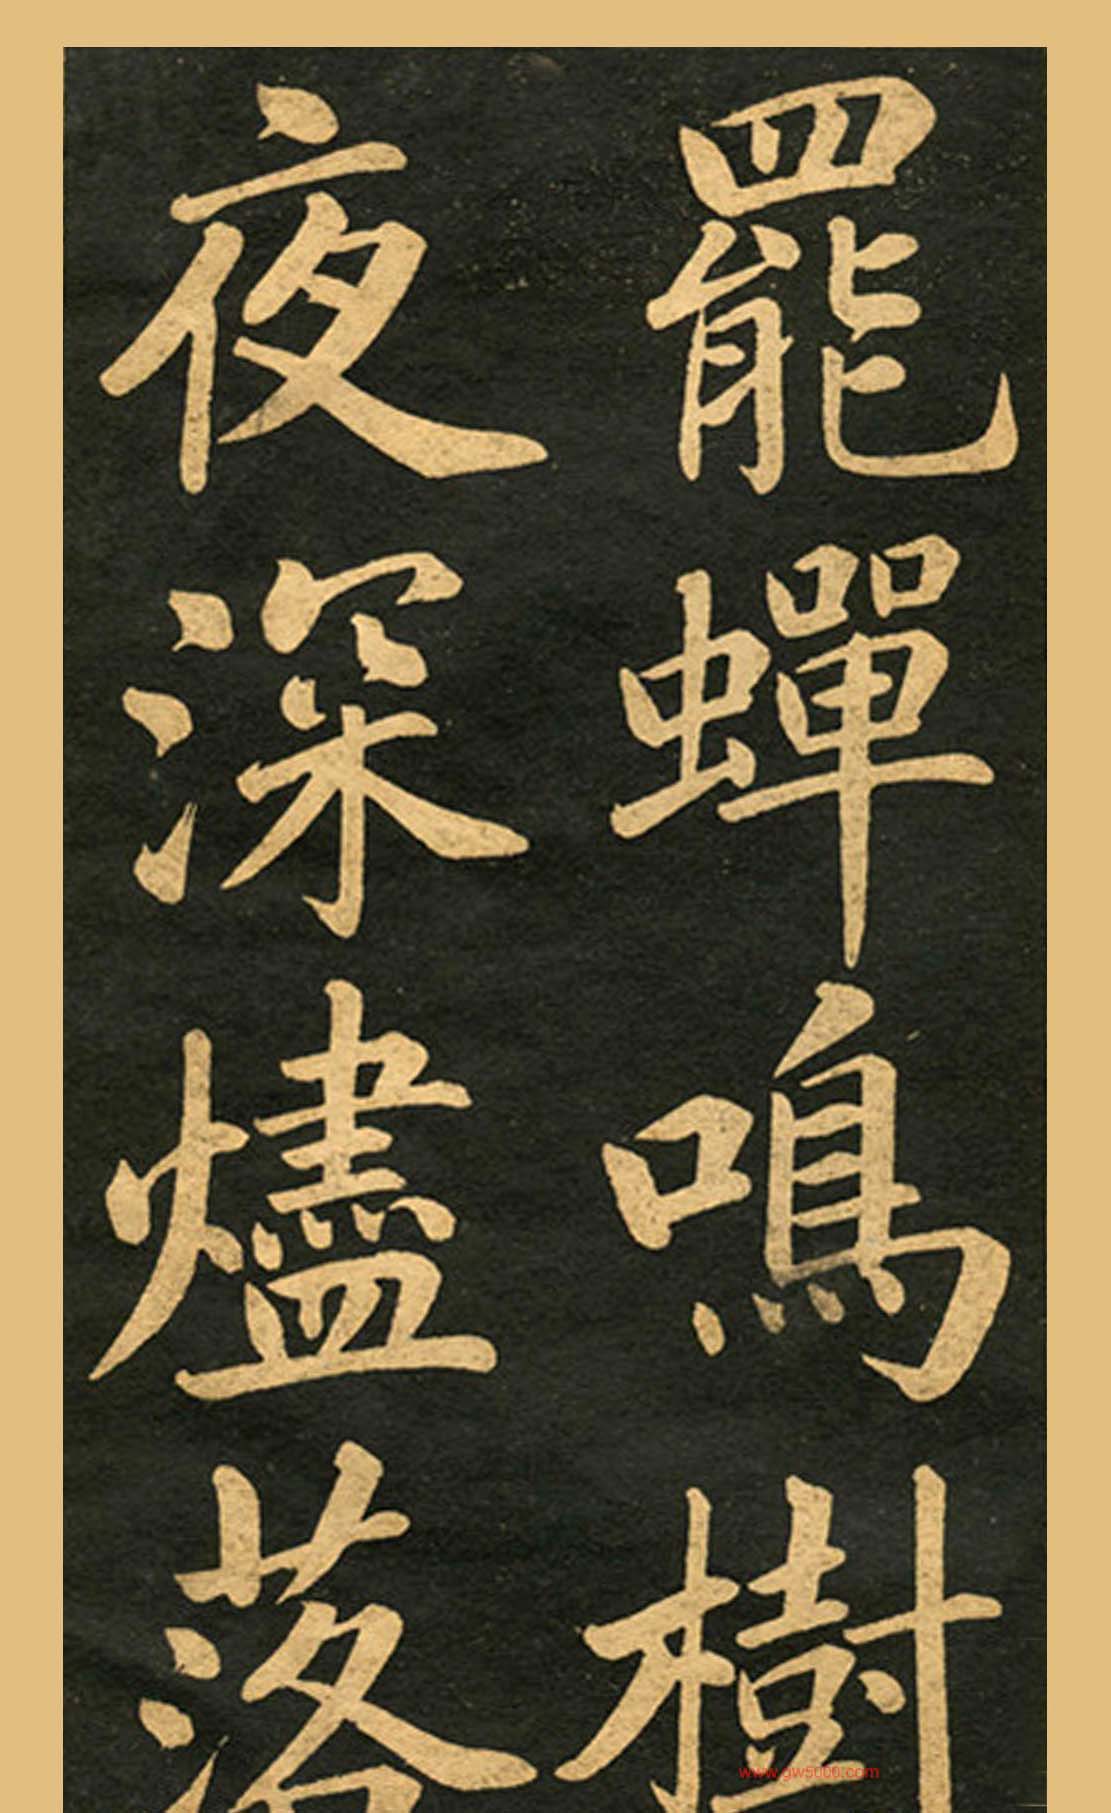 罷蟬鳴樹
夜深燼落
www.gw5000.com